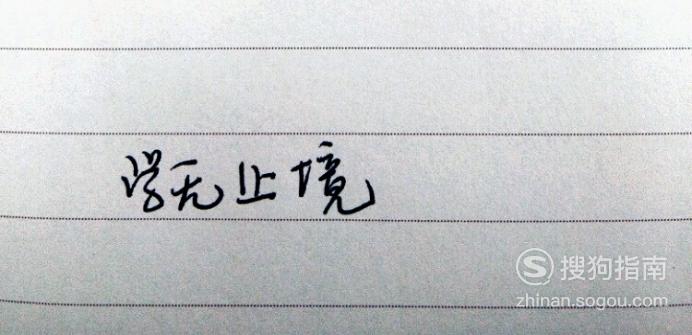 学无止境
搜狗指南
zhinan.sogou.com